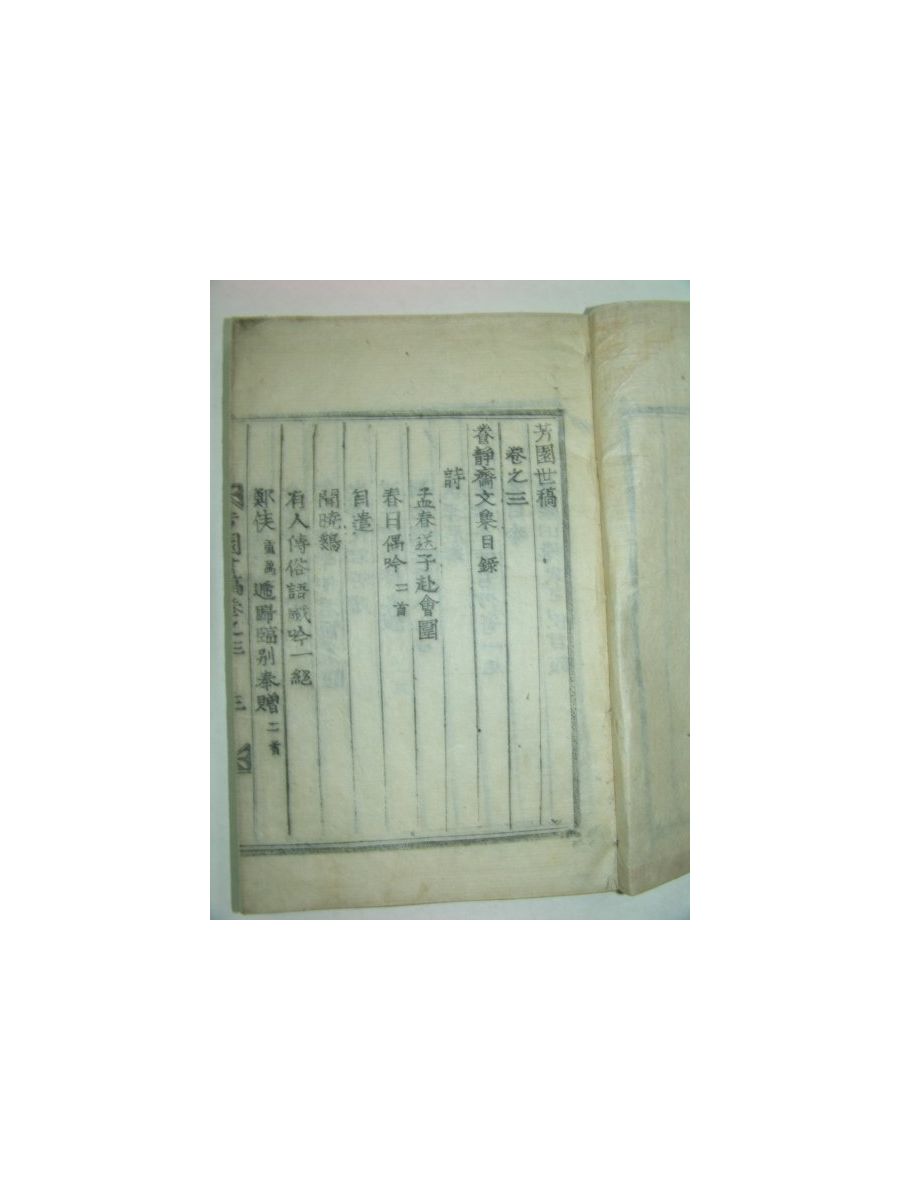 芳園世稿
卷之三
養靜齋文集目錄
詩
孟春送子赴會圍
春日偶吟 二首
自遣
聞曉鷄
有人傳俗語戱吟一絕
鄭倅 遞歸臨別奉贈 二首
芳園世稿卷之三 三